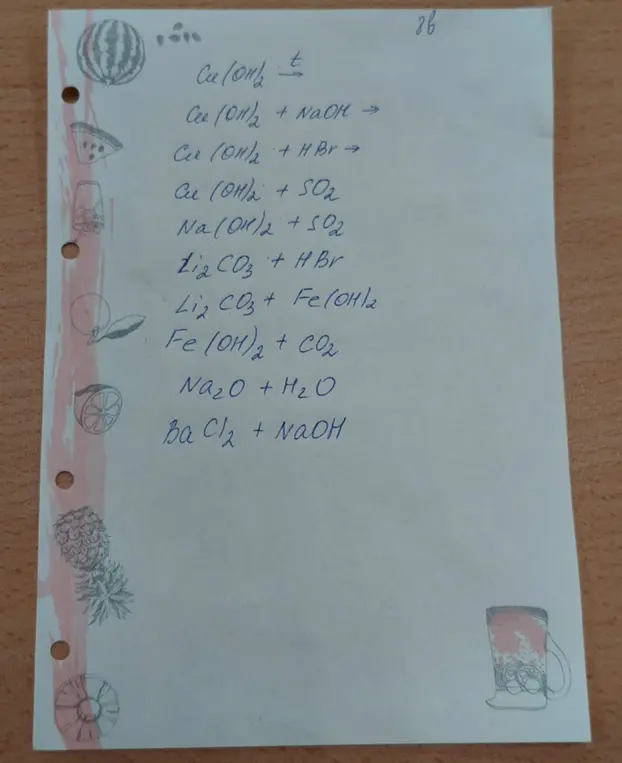 8в
Cu(OH)2 t→
Cu(OH)2 + NaOH →
Cu(OH)2 + HBr →
Cu(OH)2 + SO2
Na(OH)2 + SO2
Li2CO3 + HBr
Li2CO3 + Fe(OH)2
Fe(OH)2 + CO2
Na2O + H2O
BaCl2 + NaOH